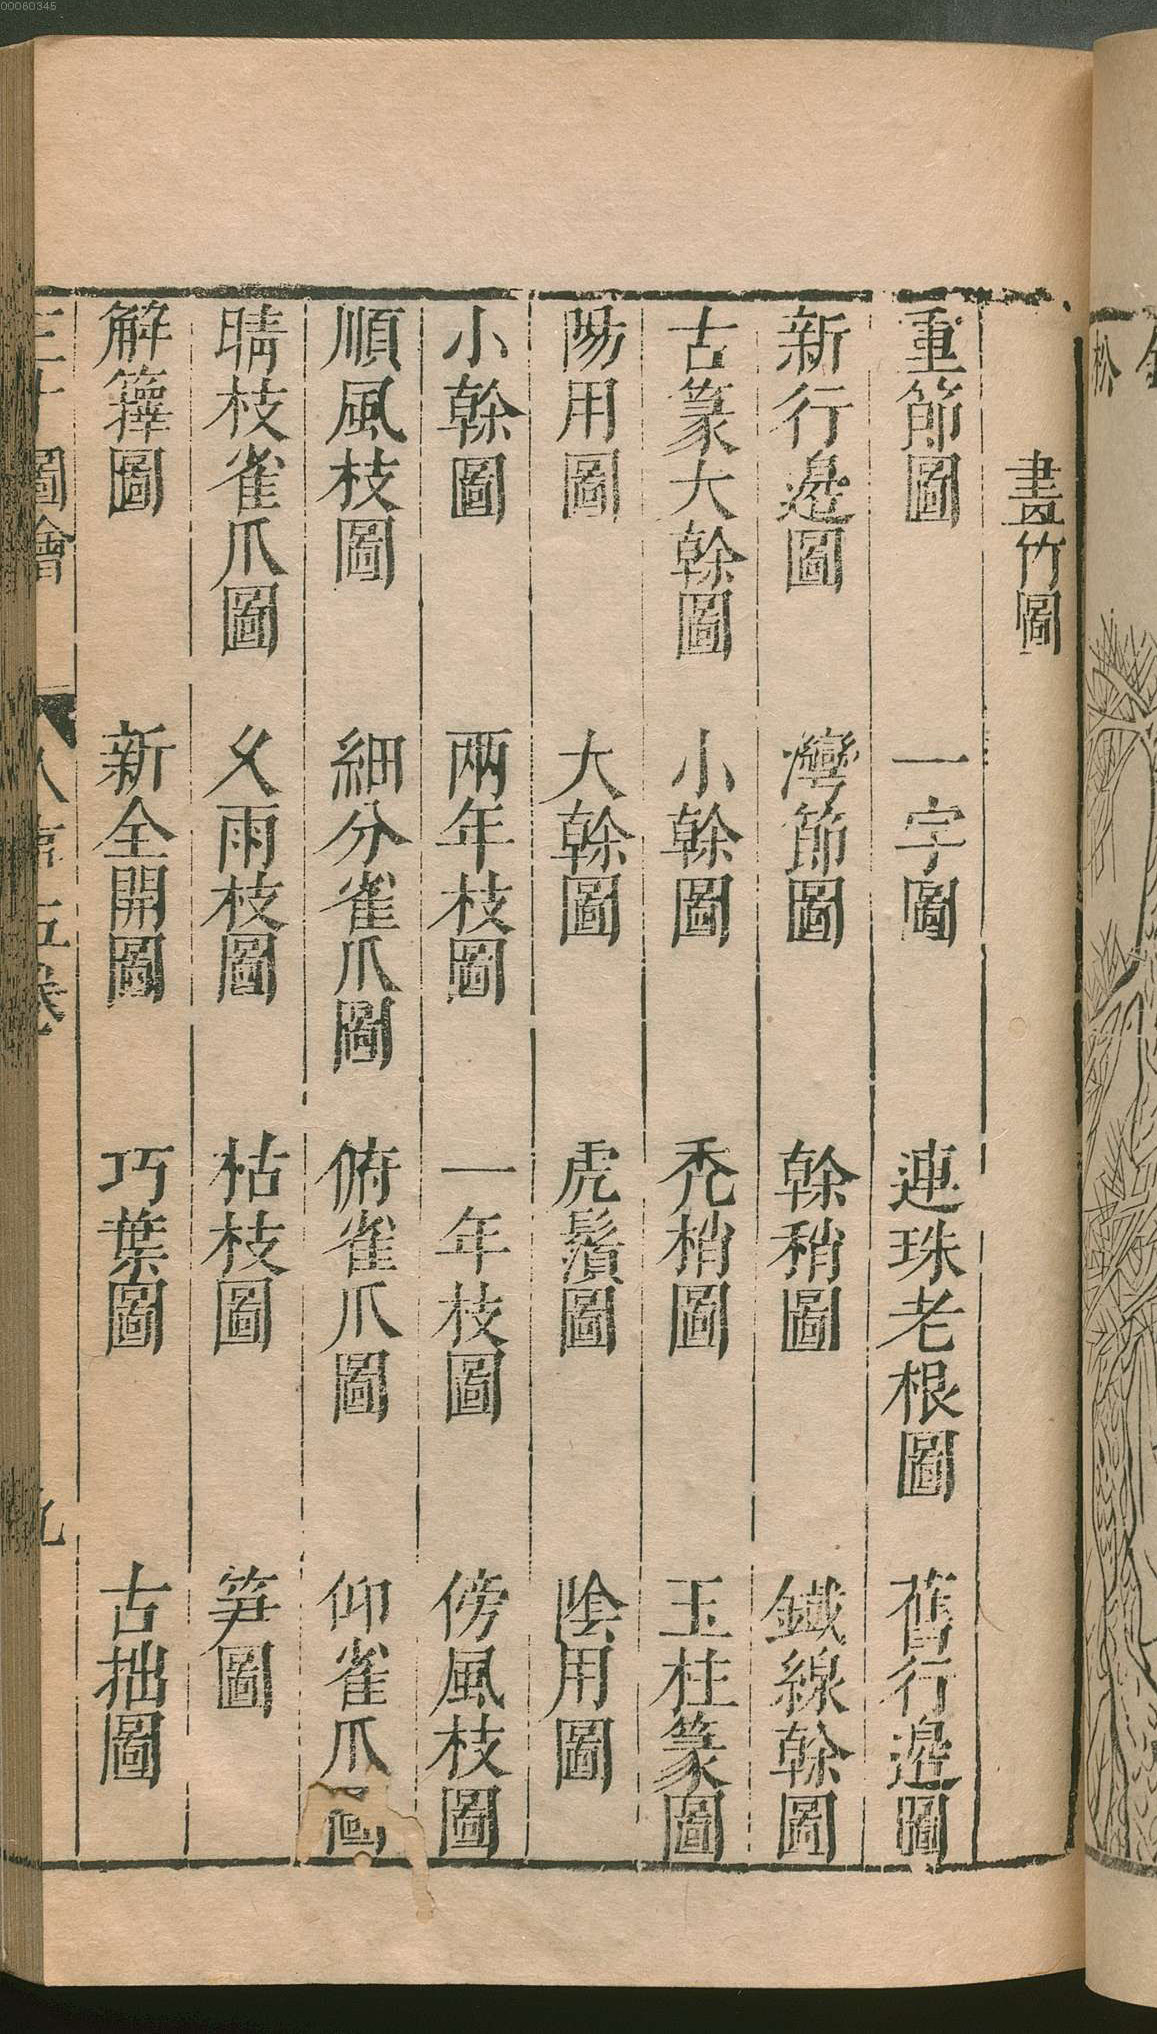 00060345
畫竹圖
重節圖 一字圖 連珠老根圖 舊行邊圖
新行邊圖 灣節圖 幹稍圖 鐵線幹圖
古篆大幹圖 小幹圖 禿梢圖 玉柱篆圖
陽用圖 大幹圖 虎鬚圖 陰用圖
小幹圖 兩年枝圖 一年枝圖 傍風枝圖
順風枝圖 細分雀爪圖 俯雀爪圖 仰雀爪圖
晴枝雀爪圖 久雨枝圖 枯枝圖 笋圖
解籜圖 新全開圖 巧葉圖 古拙圖
三才圖會 五卷 九
松